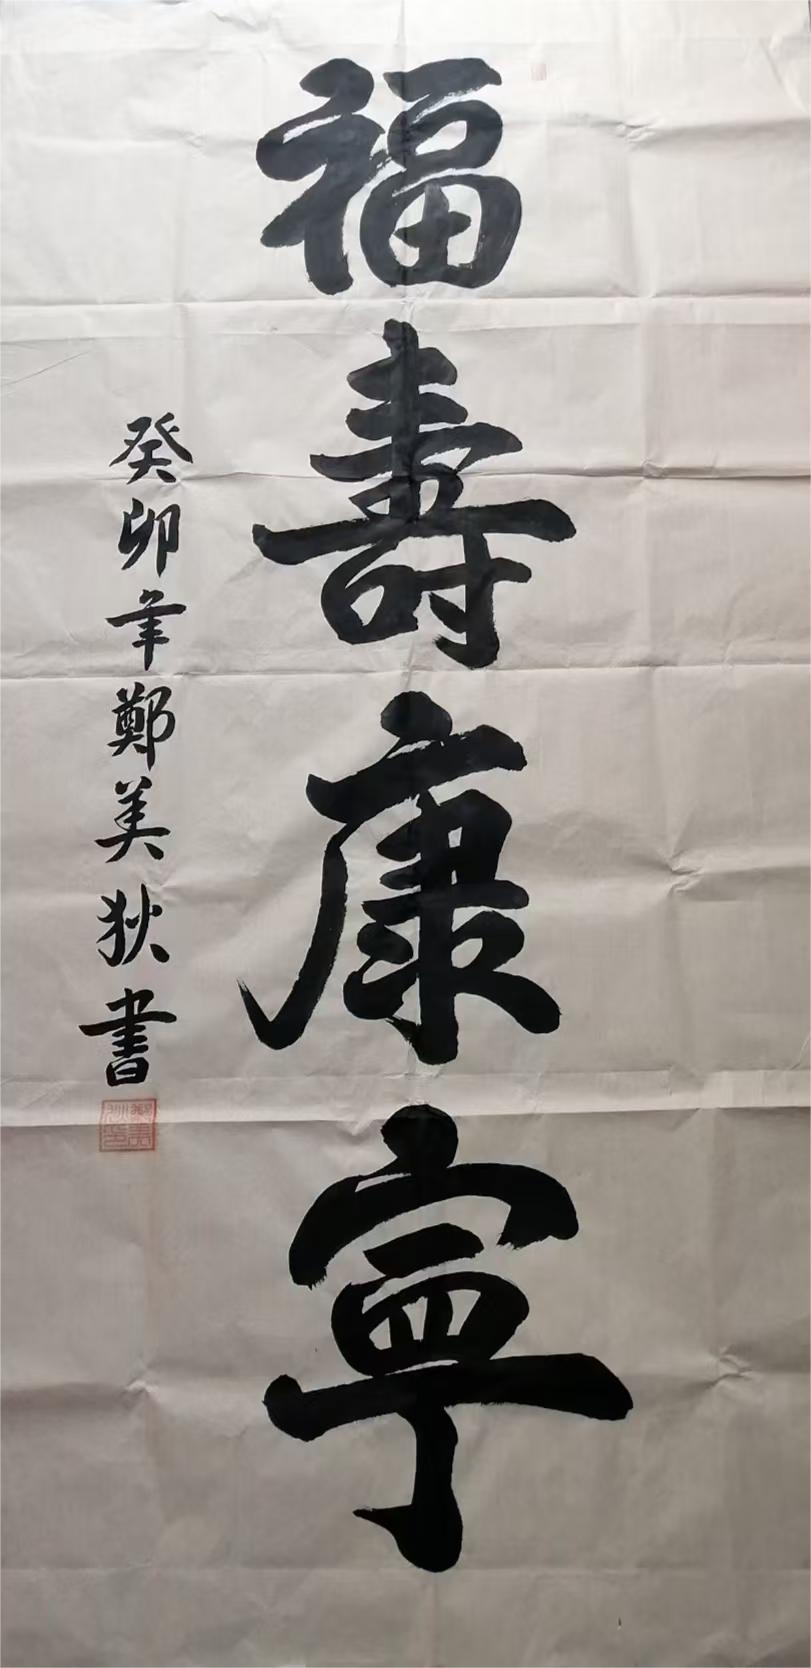 福壽康寧
癸卯年鄭美狄書